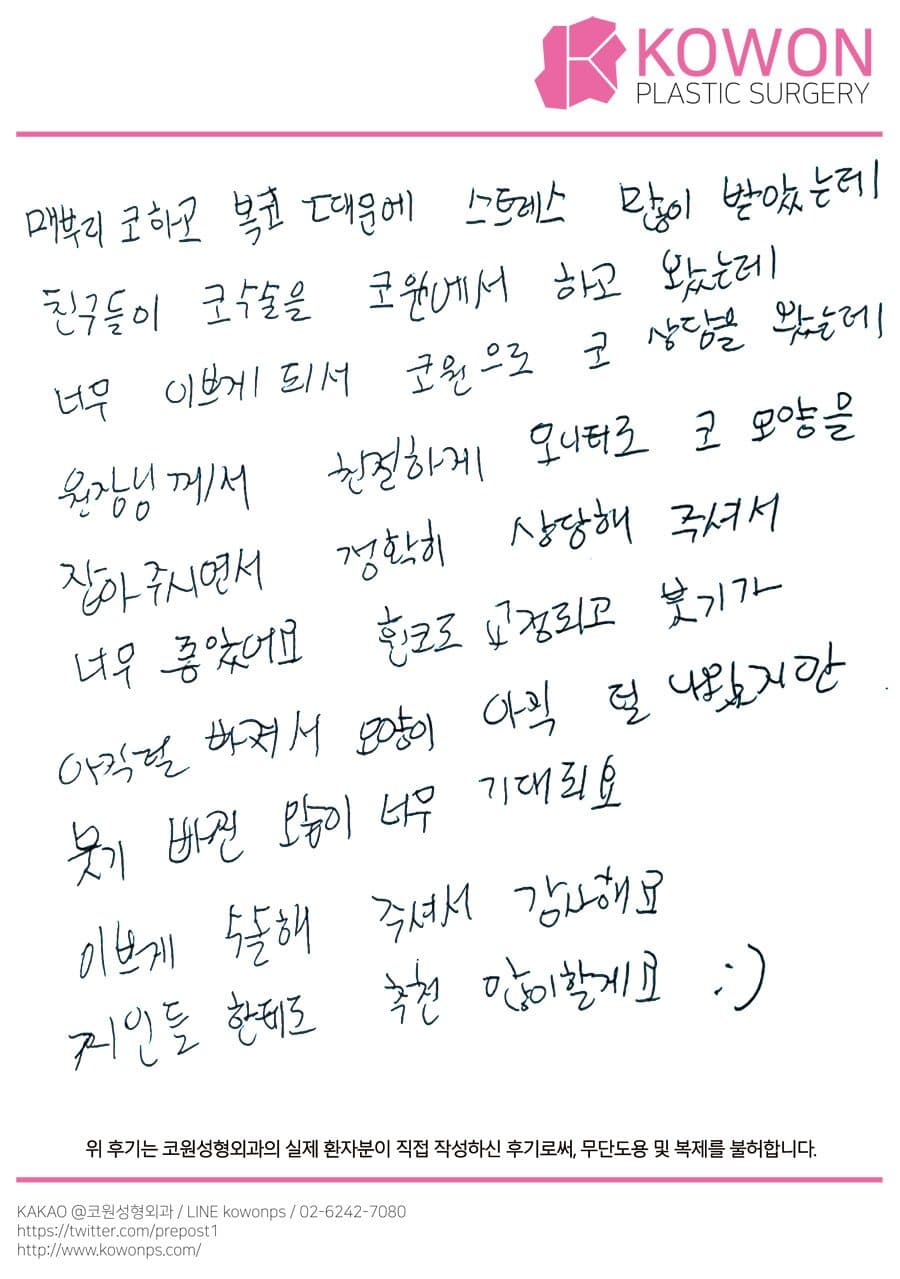 KOWON
PLASTIC SURGERY
매부리 코하고 복코 때문에 스트레스 많이 받았는데
친구들이 코수술을 코원에서 하고 왔는데
너무 이쁘게 되서 코원으로 코 상담을 왔는데
원장님께서 친절하게 모니터로 코 모양을
잡아주시면서 정확히 상담해 주셔서
너무 좋았어요 휜코도 교정되고 붓기가
아직덜 빠져서 모양이 아직 덜 나왔지만
붓기 빠진 모습이 너무 기대되요
이쁘게 수술해 주셔서 감사해요
지인들 한테도 추천 많이할게요 :)
위 후기는 코원성형외과의 실제 환자분이 직접 작성하신 후기로써, 무단도용 및 복제를 불허합니다.
KAKAO @코원성형외과 / LINE kowonps / 02-6242-7080
https://twitter.com/prepost1
http://www.kowonps.com/